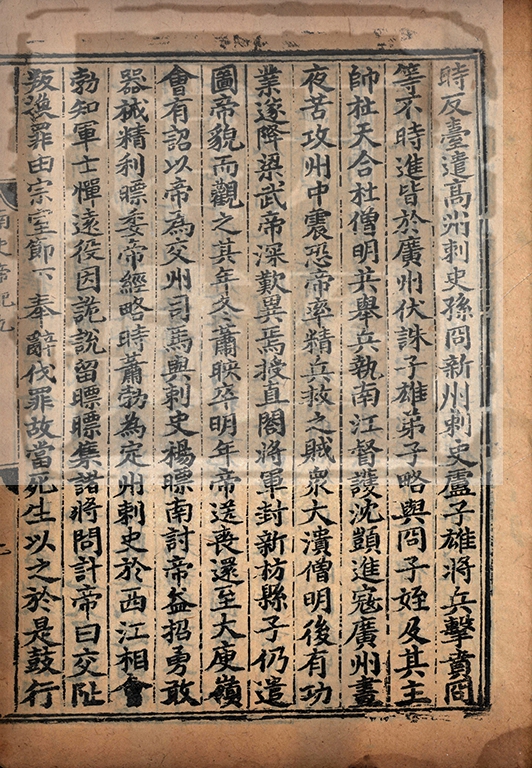 時反臺遣高州刺史孫冏新州刺史盧子雄將兵擊賁冏
等不時進皆於廣州伏誅子雄弟子略與冏子姪及其主
帥杜天合杜僧明共舉兵執南江督護沈顗進寇廣州晝
夜苦攻州中震恐帝率精兵救之賊衆大潰僧明後有功
業遂降梁武帝深歎異焉授直閤將軍封新枋縣子仍遣
圖帝貌而觀之其年冬蕭映卒明年帝送喪還至大庾嶺
會有詔以帝為交州司馬與刺史楊㬓南討帝益招勇敢
器械精利㬓委帝經略時蕭勃為定州刺史於西江相會
勃知軍士憚遠役因詭說留㬓㬓集諸將問計帝曰交阯
叛渙罪由宗室節下奉辭伐罪故當死生以之於是鼓行
南史帝紀九